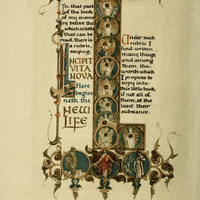 In that part
of the book
of my memo
ry before the
which is little
that can be
read, there is
a rubric,
saying,
INCIPIT
VITA
NOVA
Here
begin
neth the
NEW
LIFE
Under such
rubric I
find written
many things
and among
them the
words which
I propose to
copy into
this little book;
if not all of
them, at the
least their
substance.